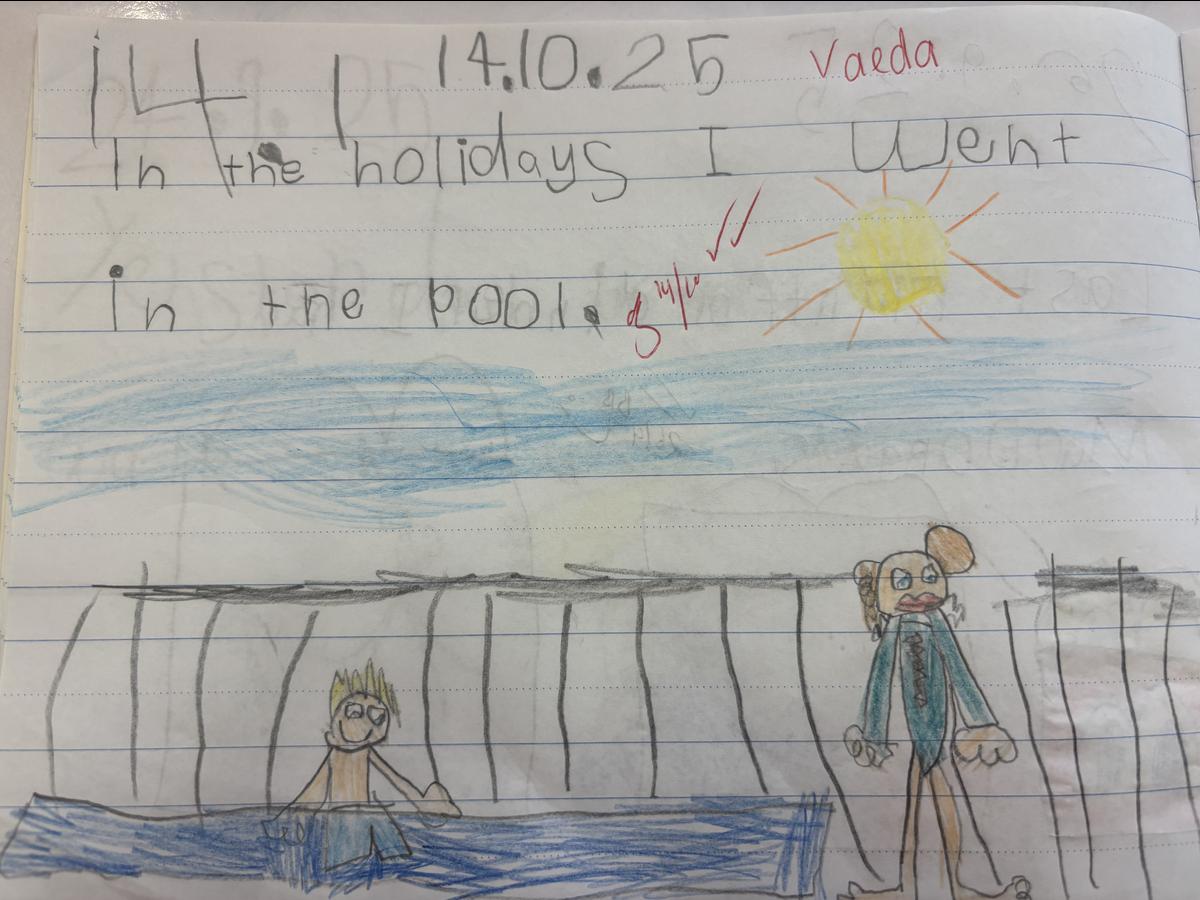 14.1 14.10.25 Vaeda
In the holidays I Went
in the pool. 14/10